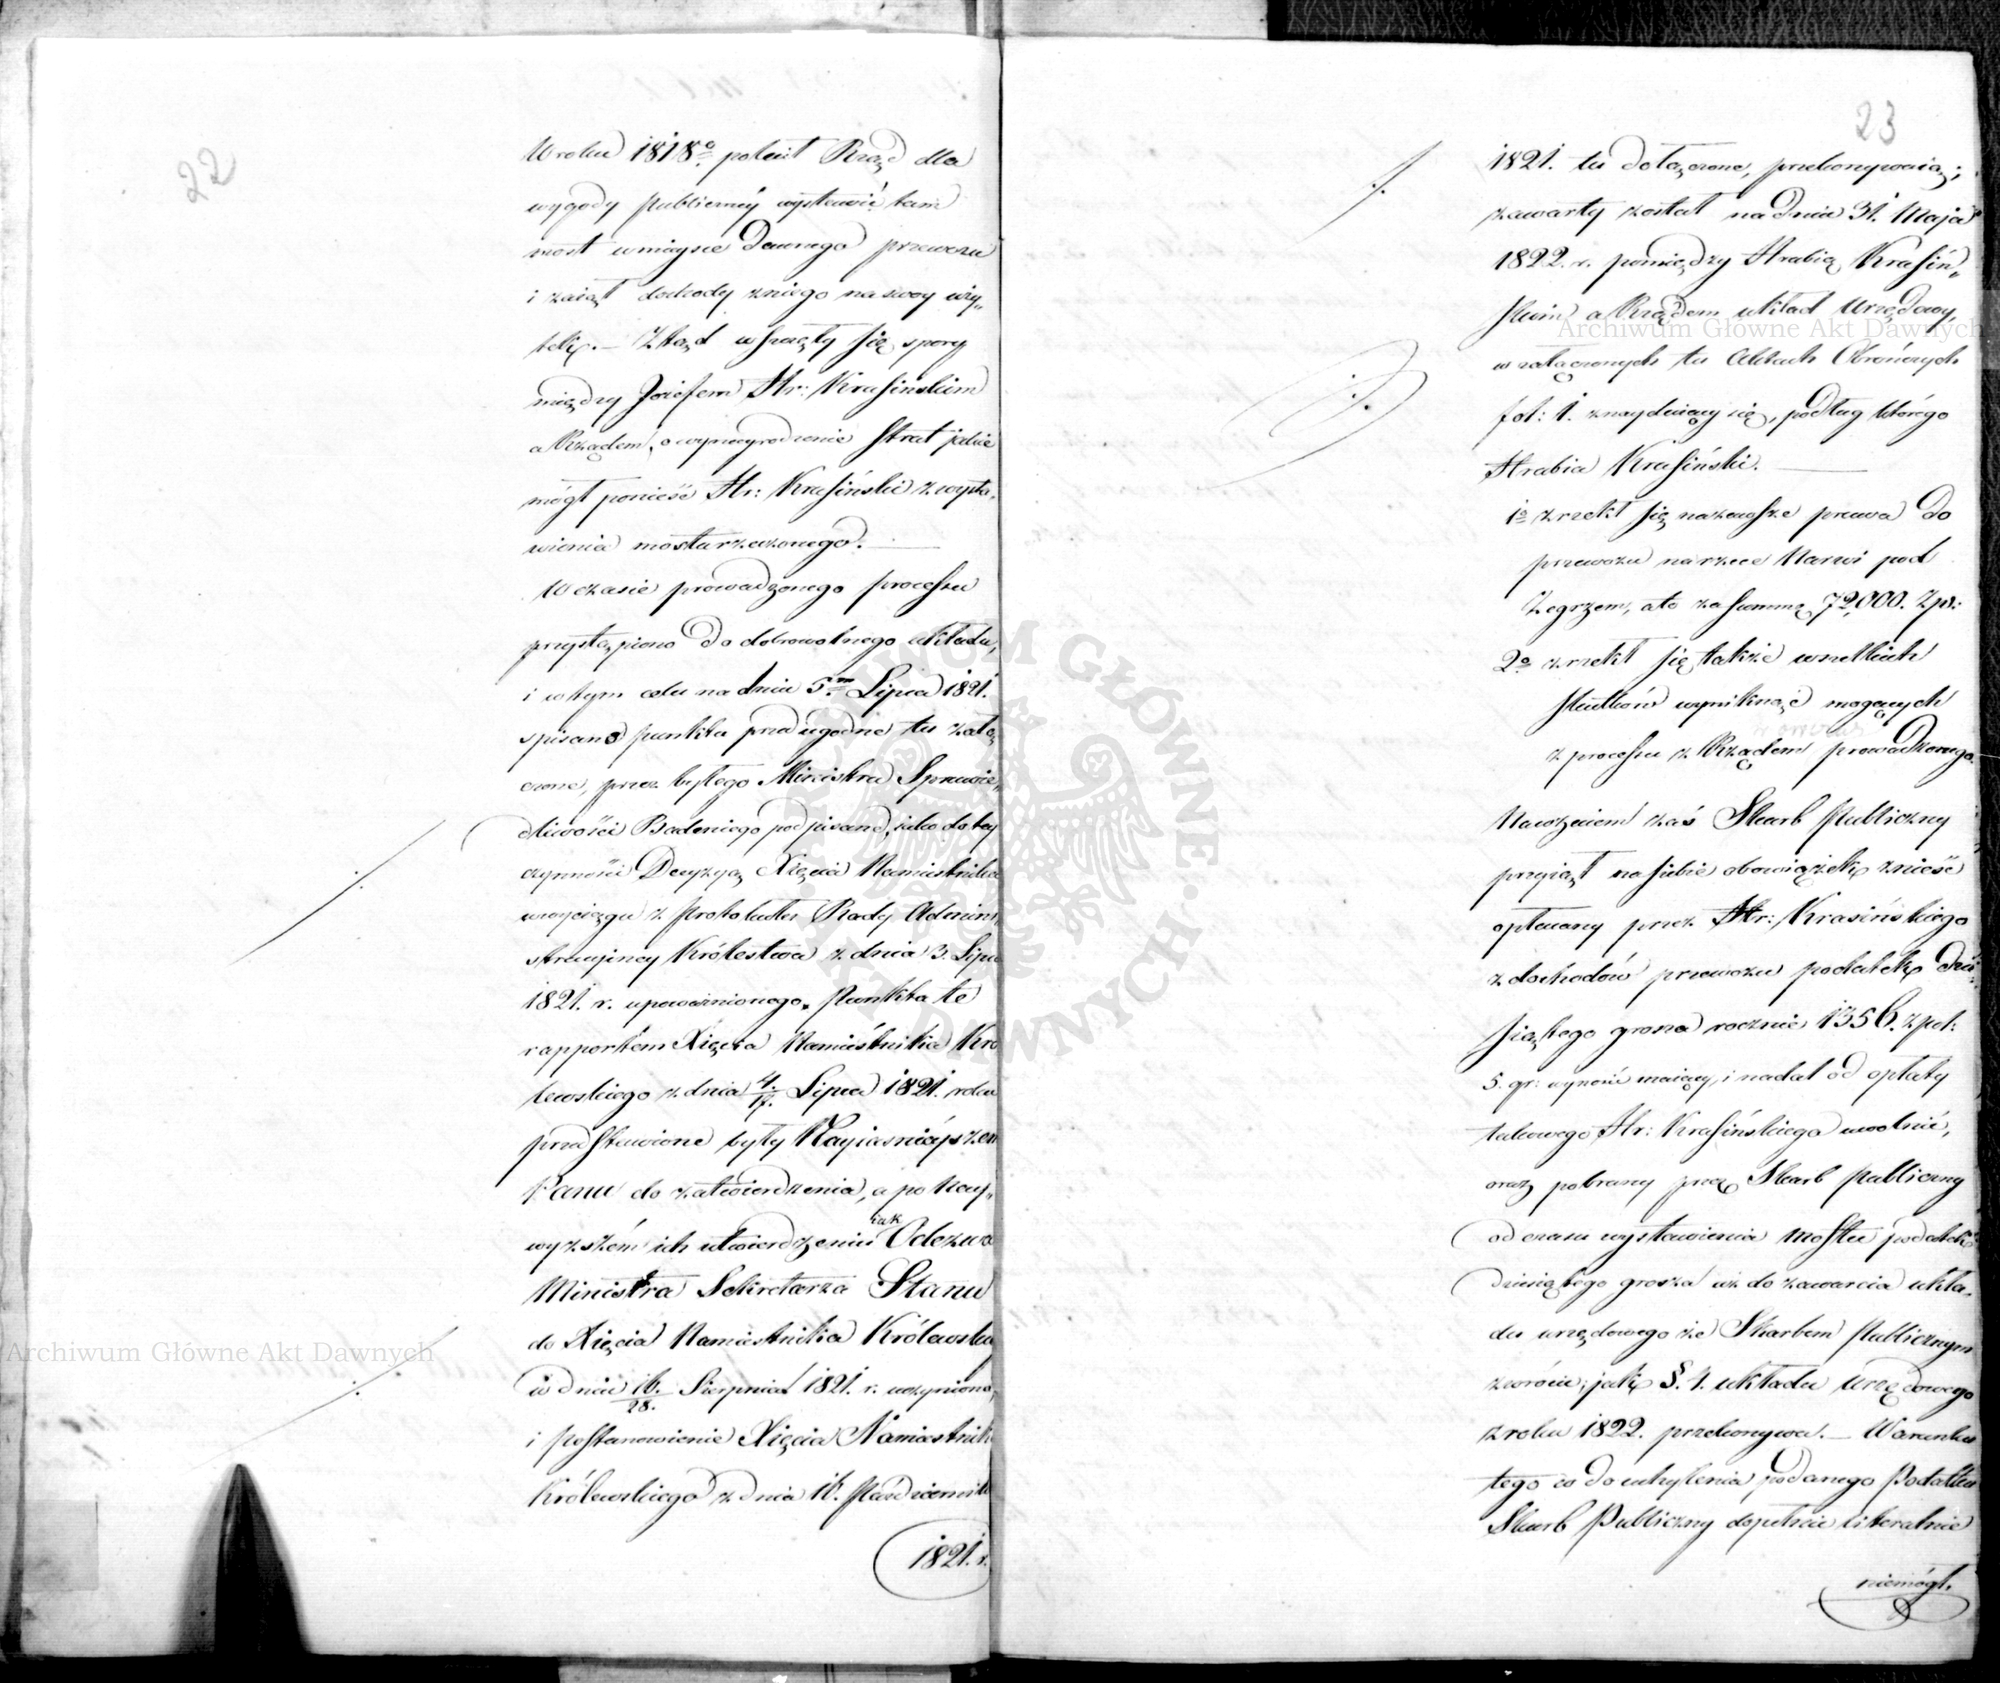 22
W roku 1818º polecił Rząd dla
wygody publicznéy wystawić tam
most w miejsce dawnego przewozu
i zaiął dochody z niego na swoy uży„
tek. — Ztąd wszczęły się spory
między Józefem Hr: Krasińskim
a Rządem, o wynagrodzenie strat jakie
mógł ponieść Hr: Krasiński z wysta„
wienia mostu rzeczonego. —
W czasie prowadzonego processu
przystąpiono do dobrowolnego układu,
i w tym celu na dniu 5m Lipca 1821.
spisano punkta przedugodne tu załą„
czone, przez byłego Ministra Sprawie„
dliwości Badeniego podpisane, jako do tey
czynności Decyzyą Xięcia Namiestnika
w wyciągu z protokułu Rady Admini„
stracyiney Królestwa z dnia 3. Lipca
1821. r. upoważnionego. Punkta te
rapportem Xięcia Namiestnika Kró
lewskiego z dnia 4./17. Lipca 1821. roku
przedstawione były Nayiaśnieyszem
Panu do zatwierdzenia, a po Nay„
wyższém ich utwierdzeniu jak Odezwa
Ministra Sekretarza Stanu
do Xięcia Namiestnika Królewsk
w dniu 16./28. Sierpnia 1821. r. uczyniona,
i postanowienie Xięcia Namiestnik
Królewskiego z dnia 16. Październik
1821. r.
23
1821. tu dołączone, przekonywaią;
zawarty został na dniu 31. Maja
1822. r. pomiędzy Hrabią Krasiń„
skim a Rządem układ Urzędowy,
w załączonych tu Aktach Obrończych
fol: 1. znayduiący się, podług którego
Hrabia Krasiński. —
1º zrzekł się nazawsze prawa do
przewozu na rzece Narwi pod
Zegrzem, a to za summę 72,000. Zpl:
2º zrzekł się także wszelkich
skutków wyniknąć mogących
z processu z Rządem prowadzonego.
Nawzaiem zaś Skarb Publiczny
przyiął na siebie obowiązek znieść
opłacany przez Hr: Krasińskiego
z dochodów przewozu podatek dzie„
siątego grosza rocznie 1356. zpol:
5. gr: wynosić maiący, i nadal od opłaty
takowego Hr: Krasińskiego uwolnić,
oraz pobrany przez Skarb Publiczny
od czasu wystawienia mostu podatek
dziesiątego grosza aż do zawarcia ukła„
du urzędowego ze Skarbem Publicznym
zwrócić; jak §. 1. układu Urzędowego
z roku 1822. przekonywa. — Warunku
tego co do uchylenia podanego Podatku
Skarb Publiczny dopełnić literalnie
niemógł.
Archiwum Główne Akt Dawnych
Archiwum Główne Akt Dawnych